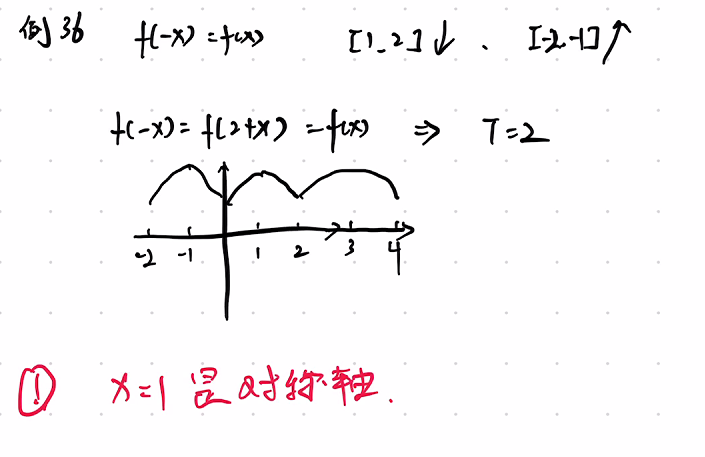 例36 f(-x)=f(x) [1,2]↓. [-2,-1]↑
f(-x)=f(2+x)=f(x) ⇒ T=2
-2 -1 1 2 3 4
① x=1是对称轴.